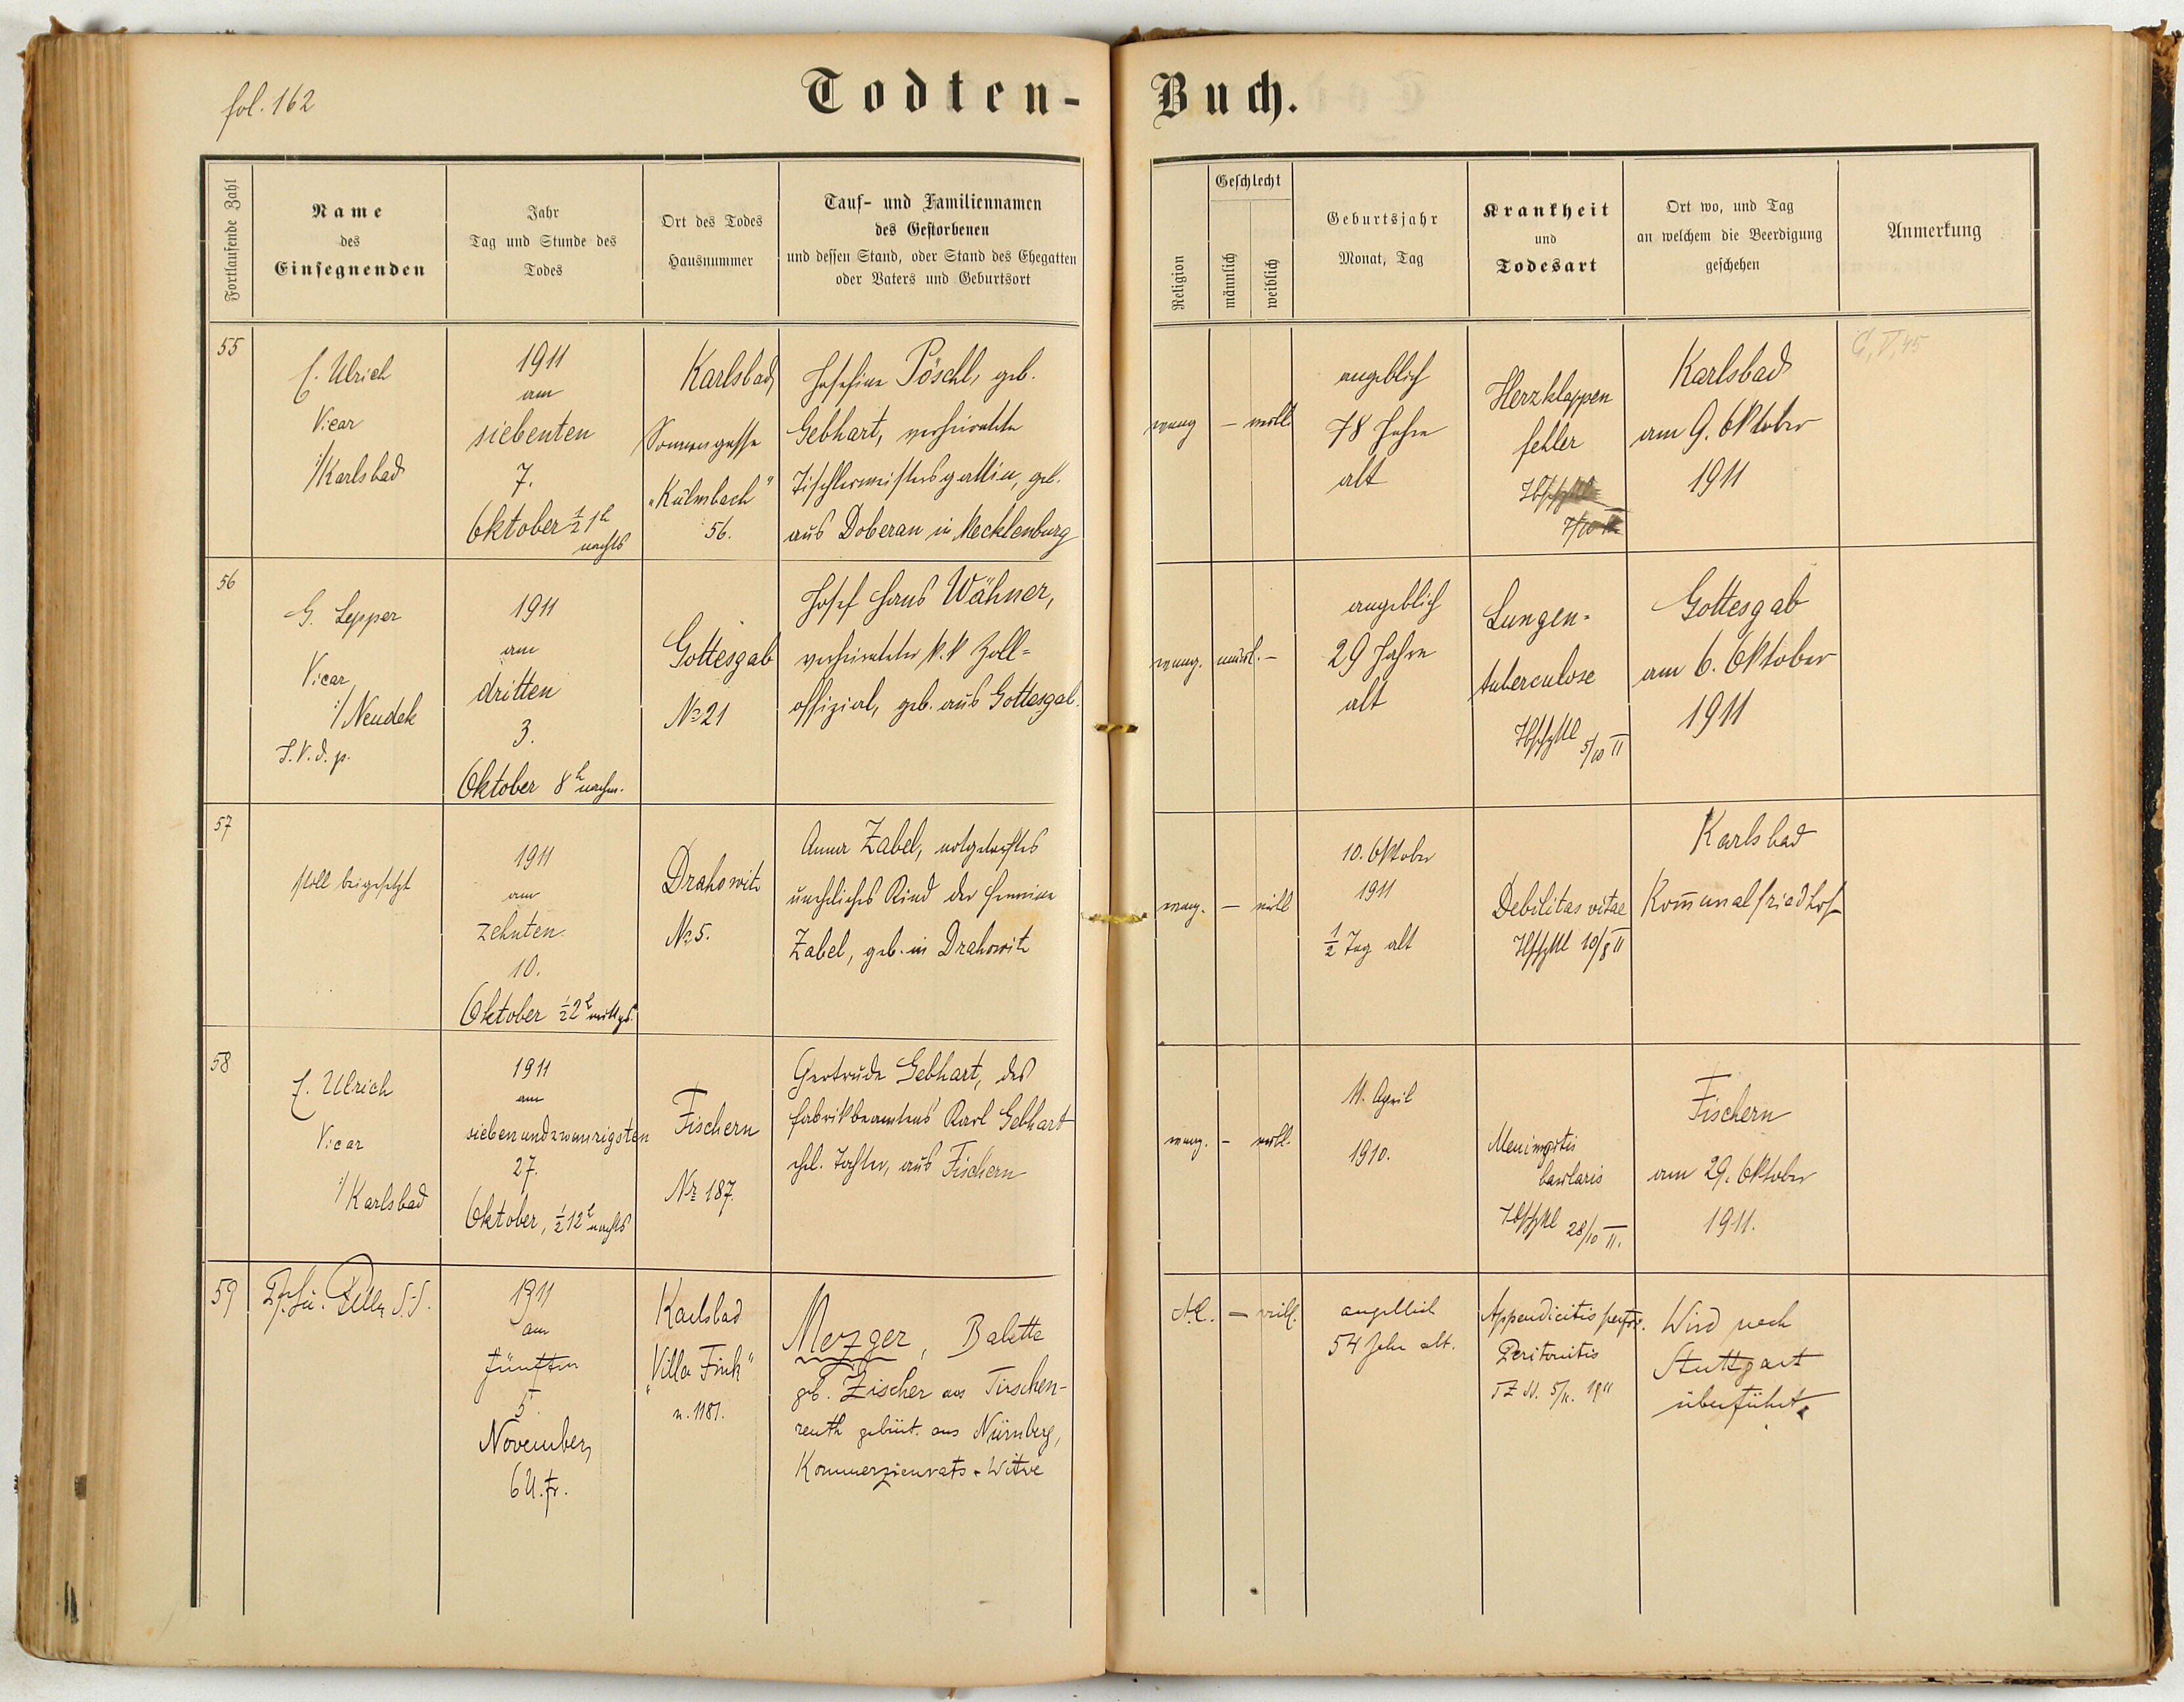 fol. 162
Todten-
Buch.
Fortlaufende Zahl
Name
des
Einsegnenden
Jahr
Tag und Stunde des
Todes
Ort des Todes
Hausnummer
Tauf- und Familiennamen
des Gestorbenen
und dessen Stand, oder Stand des Ehegatten
oder Vaters und Geburtsort
Religion
Geschlecht
männlich
weiblich
Geburtsjahr
Monat, Tag
Krankheit
und
Todesart
Ort wo, und Tag
an welchem die Beerdigung
geschehen
Anmerkung
55
Ulrich
Vicar
i/Karlsbad
1911
am
siebenten
7.
Oktober ½ 1h
nachts
Karlsbad
Sonnengasse
"Kulmbach"
56.
Josefine Pöschl, geb.
Gebhart, verheiratete
Tischlermeistersgattin, geb.
aus Doberan in Mecklenburg
evang
—
weibl.
angeblich
78 Jahre
alt
Herzklappen
fehler
Karlsbad
am 9. Oktober
1911
56
G. Lepper
Vicar
i/ Neudek
1911
am
dritten
3.
Oktober 8h nachm.
Gottesgab
No 21
Josef Hans Wähner,
verheirateter k.k Zoll-
offizial, geb. aus Gottesgab.
evang.
männl. —
angeblich
29 Jahre
alt
Lungen-
tuberculose
5/10 11
Gottesgab
am 6. Oktober
1911
57
still beigesetzt
1911
am
zehnten
10.
Oktober ½ 2h mittgs.
Drahowitz
No 5.
Anna Zabel, notgetauftes
uneheliches Kind der Hermine
Zabel, geb. in Drahowitz
evang.
—
weibl
10. Oktober
1911
½ Tag alt
Debilitas vitae
Karlsbad
Kom̄unalfriedhof
58
Ulrich
Vicar
i/ Karlsbad
1911
am
siebenundzwanzigsten
27.
Oktober, ½ 12h nachts
Fischern
Nr 187.
Gertrude Gebhart, des
Fabrikbeamtens Karl Gebhart
ehl. Tochter, aus Fischern
evang.
—
weibl.
11. April
1910.
Meningitis
basilaris
28/10 11.
Fischern
am 29. Oktober
1911.
59
1911
am
fünften
5.
November,
6 U. fr.
Karlsbad
"Villa Fink"
n. 1181.
Mezger, Babette
geb. Zischer aus Tirschen-
reuth gebürt. aus Nürnberg,
Kommerzienrats-Witwe
—
weibl.
angeblich
54 Jahre alt.
Appendicitis perfor.
Peritonitis
5/11. 1911
Wird nach
Stuttgart
überführt.